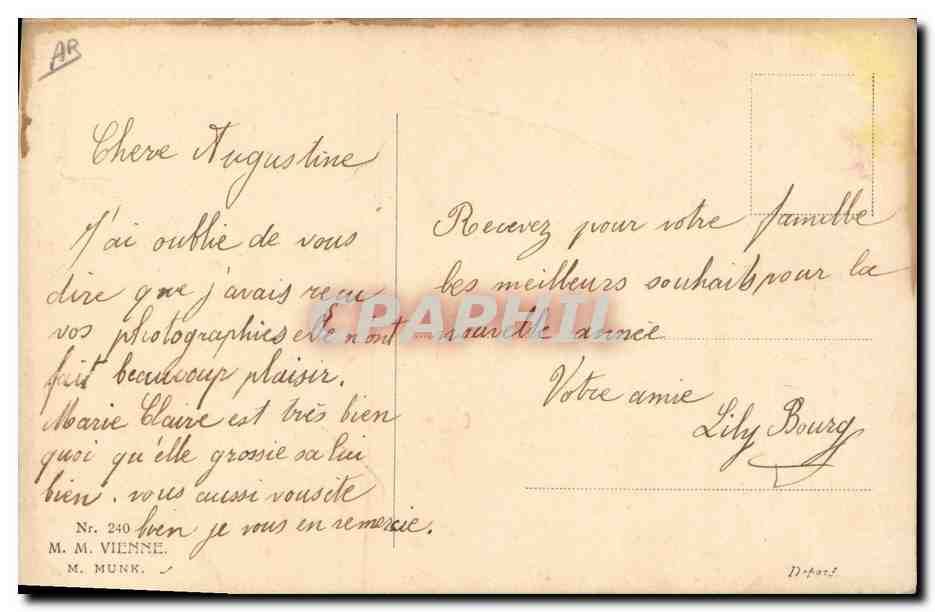 AR
Chere Augustine
J'ai oublie de vous
dire que j'avais reçu
vos photographies elle m'ont
fait beaucoup plaisir.
Marie Claire est très bien
quoi qu'elle grossie sa lui
bien. vous aussi vous ete
bien je vous en remercie.
Nr. 240
M. M. VIENNE.
M. MUNK.
Recevez pour votre famille
les meilleurs souhaits pour la
nouvelle année
Votre amie
Lily Bourg
Dépose
CPAPHIL